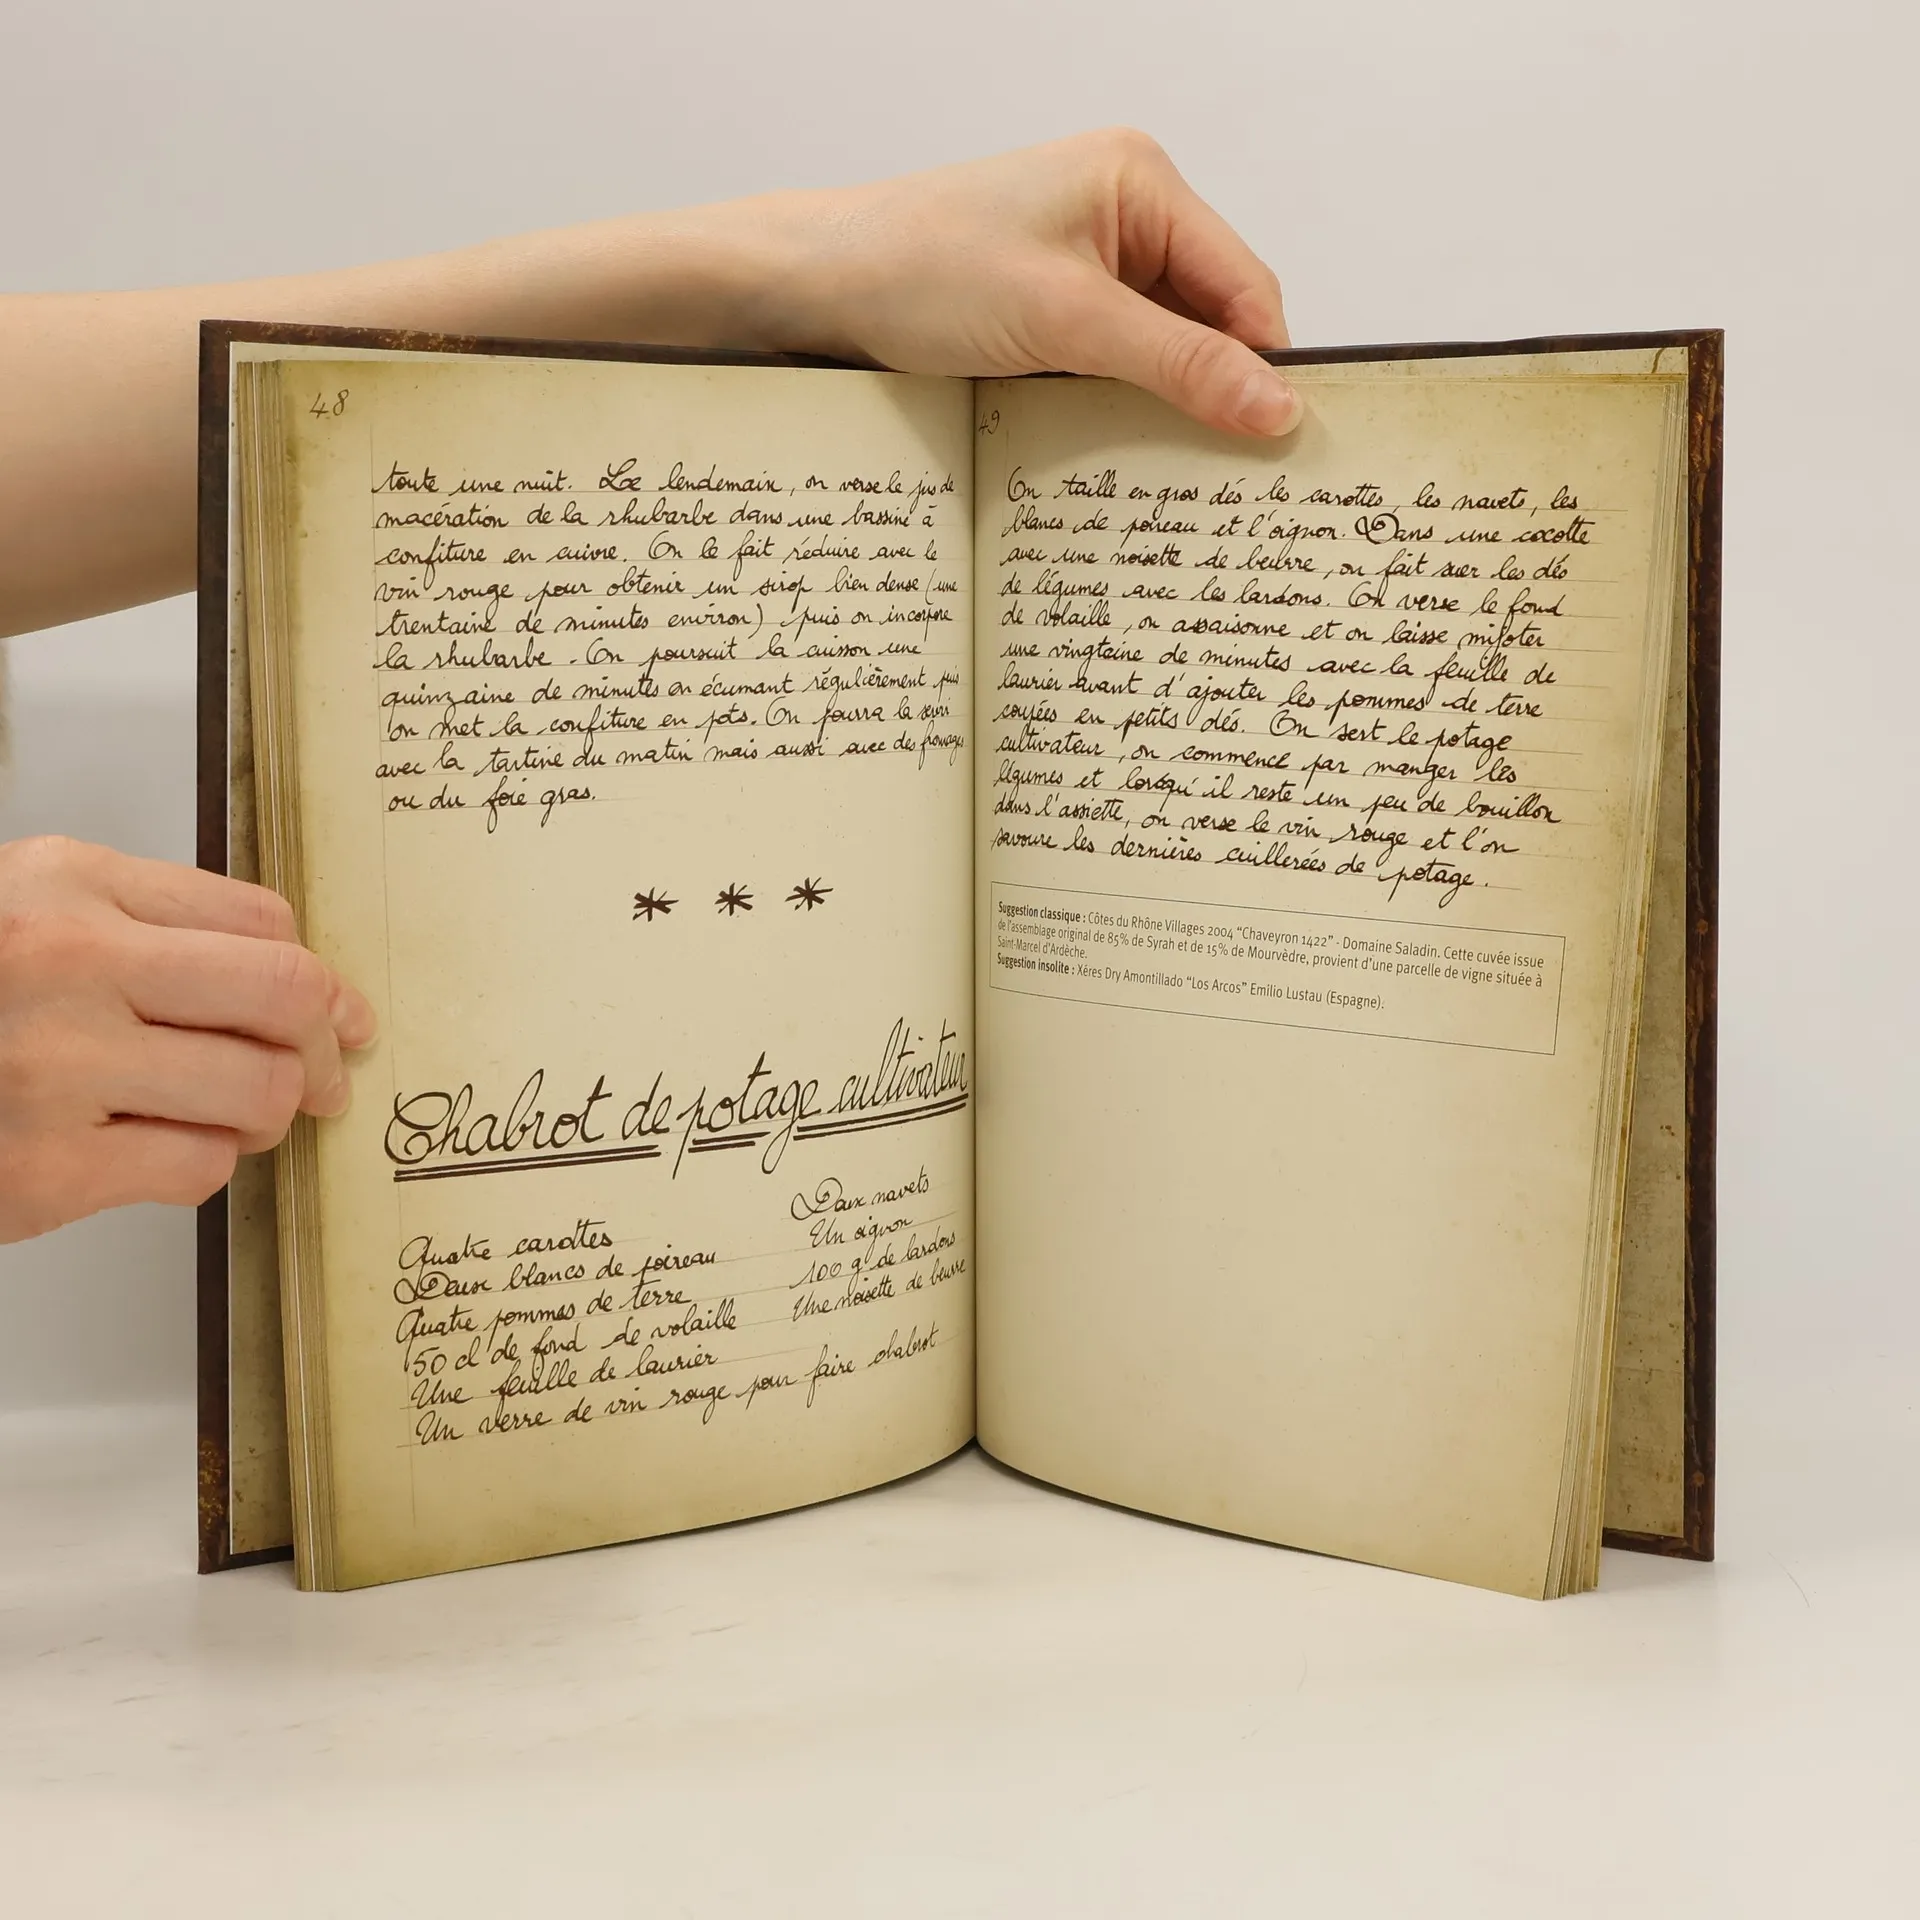 48
toute une nuit. Le lendemain, on verse le jus de
macération de la rhubarbe dans une bassine à
confiture en cuivre. On le fait réduire avec le
vin rouge pour obtenir un sirop bien dense (une
trentaine de minutes environ) puis on incorpore
la rhubarbe. On poursuit la cuisson une
quinzaine de minutes en écumant régulièrement puis
on met la confiture en pots. On pourra la servir
avec la tartine du matin mais aussi avec des fromages
ou du foie gras.
* * *
Chabrot de potage cultivateur
Quatre carottes
Deux blancs de poireau
Quatre pommes de terre
50 cl de fond de volaille
Une feuille de laurier
Un verre de vin rouge pour faire chabrot
Deux navets
Un oignon
100 g de lardons
Une noisette de beurre
49
On taille en gros dés les carottes, les navets, les
blancs de poireau et l'oignon. Dans une cocotte
avec une noisette de beurre, on fait suer les dés
de légumes avec les lardons. On verse le fond
de volaille, on assaisonne et on laisse mijoter
une vingtaine de minutes avec la feuille de
laurier avant d'ajouter les pommes de terre
coupées en petits dés. On sert le potage
cultivateur, on commence par manger les
légumes et lorsqu'il reste un peu de bouillon
dans l'assiette, on verse le vin rouge et l'on
savoure les dernières cuillerées de potage.
Suggestion classique : Côtes du Rhône Villages 2004 "Chaveyron 1422" - Domaine Saladin. Cette cuvée issue
de l'assemblage original de 85% de Syrah et de 15% de Mourvèdre, provient d'une parcelle de vigne située à
Saint-Marcel d'Ardèche.
Suggestion insolite : Xéres Dry Amontillado "Los Arcos" Emilio Lustau (Espagne).